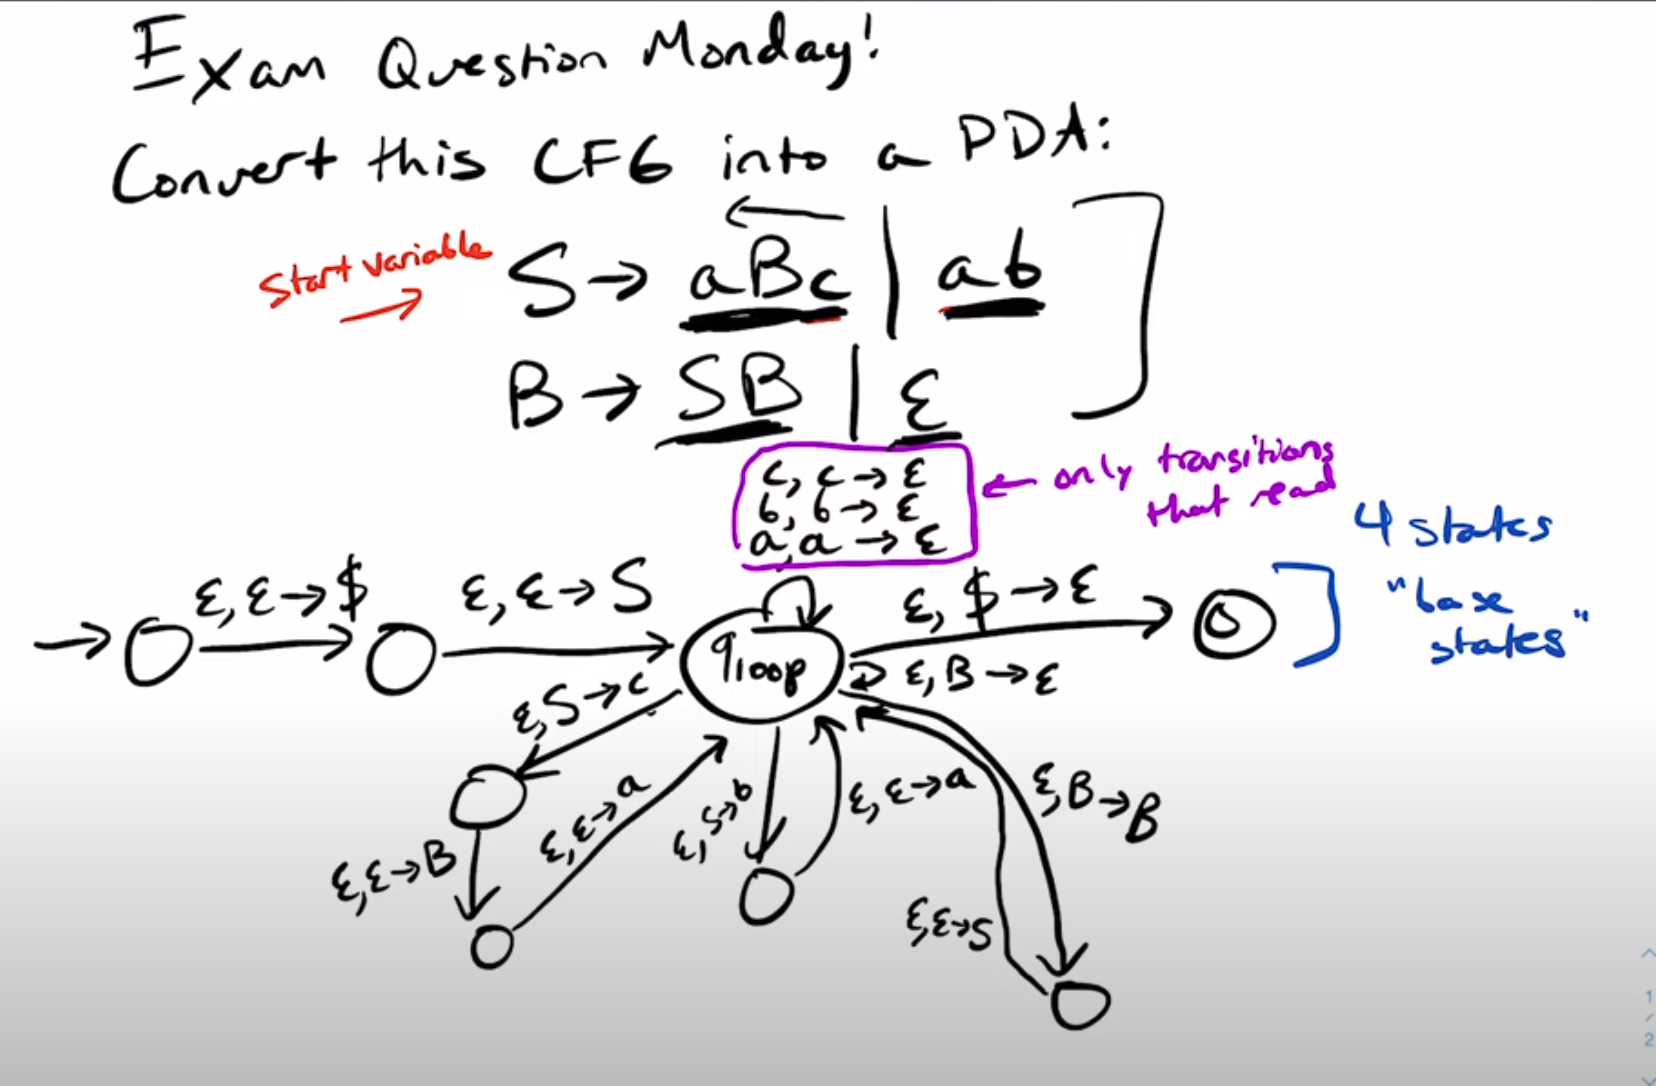 Exam Question Monday!
Convert this CFG into a PDA:
start variable
S → aBc | ab
B → SB | ε
c, c → ε
b, b → ε
a, a → ε
only transitions
that read
4 states
"base
states"
ε, ε → $
ε, ε → S
ε, $ → ε
qloop
ε, B → ε
ε, S → c
ε, ε → B
ε, ε → a
ε, S → b
ε, ε → a
ε, B → B
ε, ε → S
1
/
2